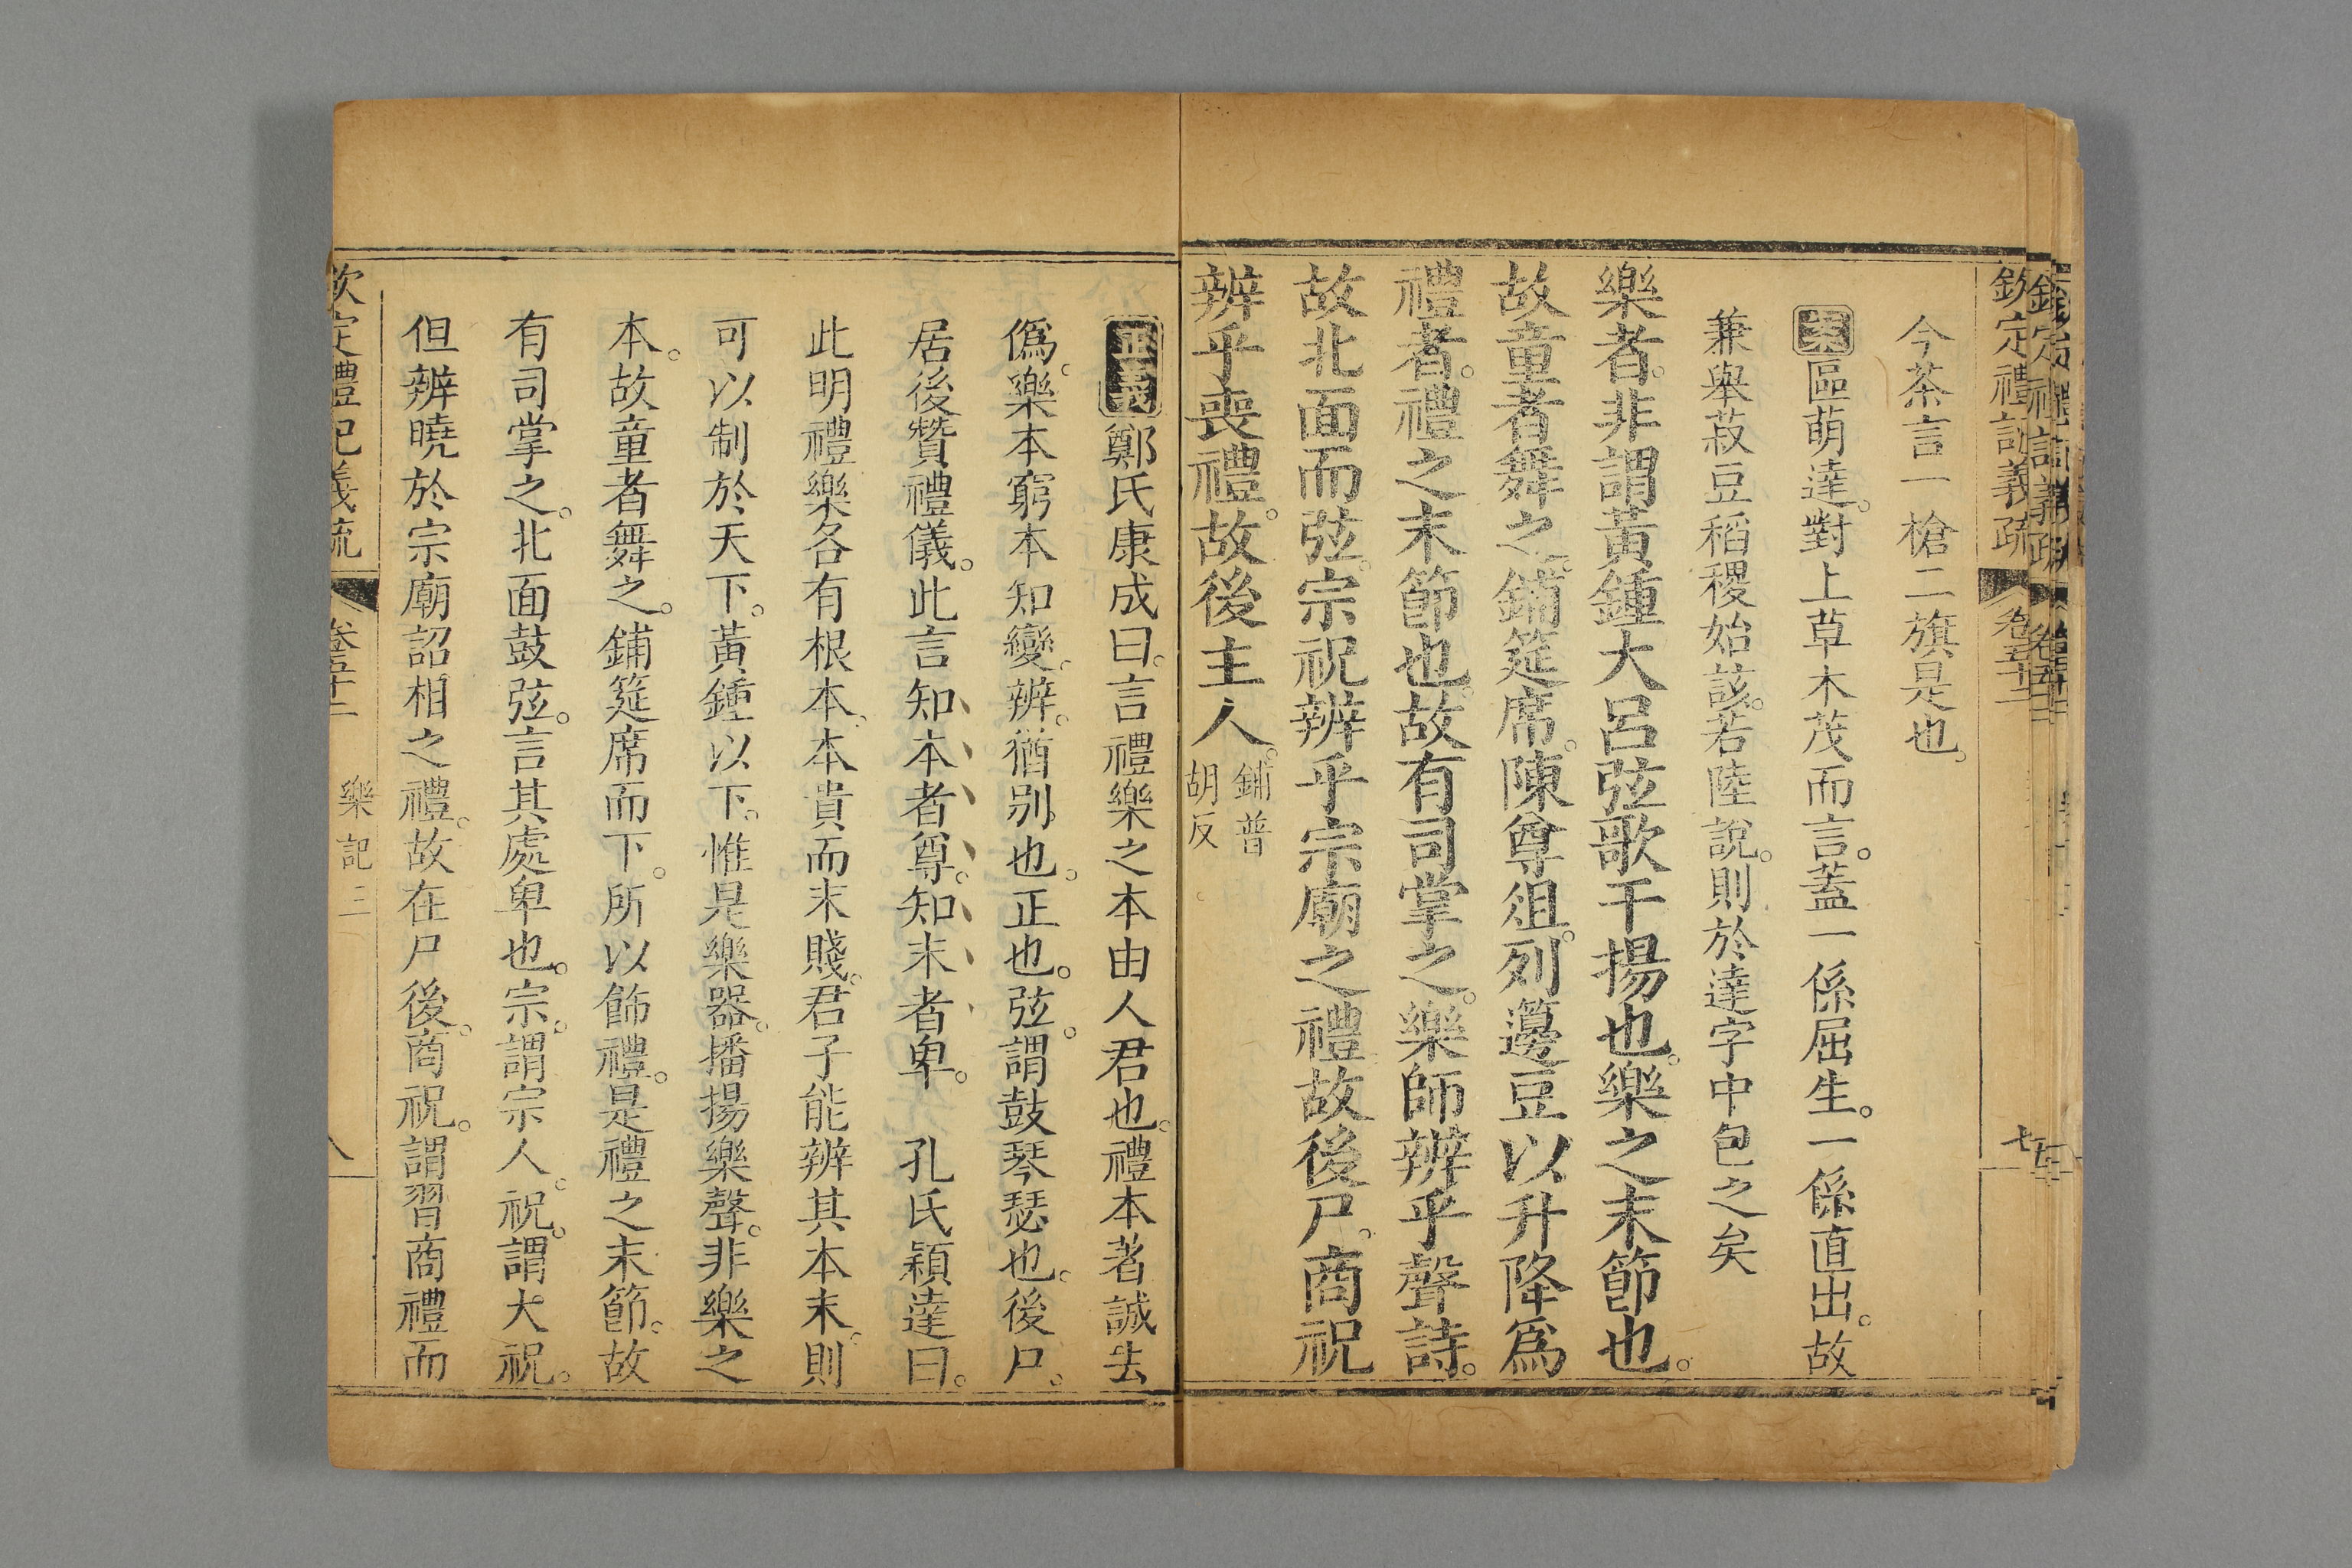 欽定禮記義疏 卷五十二 七
今茶言一槍二旗是也。
案區萌達。對上草木茂而言。蓋一係屈生。一係直出。故
兼舉菽豆稻稷始該。若陸說。則於達字中包之矣
樂者。非謂黃鍾大呂弦歌干揚也。樂之末節也。
故童者舞之。鋪筵席。陳尊俎。列籩豆以升降爲
禮者。禮之末節也。故有司掌之。樂師辨乎聲詩。
故北面而弦。宗祝辨乎宗廟之禮故後尸。商祝
辨乎喪禮。故後主人。鋪普
胡反
正義鄭氏康成曰。言禮樂之本由人君也。禮本著誠去
僞。樂本窮本知變。辨。猶別也。正也。弦。謂鼓琴瑟也。後尸。
居後贊禮儀。此言知本者尊。知末者卑。 孔氏穎達曰。
此明禮樂各有根本。本貴而末賤。君子能辨其本末。則
可以制於天下。黃鍾以下。惟是樂器。播揚樂聲。非樂之
本。故童者舞之。鋪筵席而下。所以飾禮。是禮之末節。故
有司掌之。北面鼓弦。言其處卑也。宗。謂宗人。祝。謂大祝。
但辨曉於宗廟詔相之禮。故在尸後。商祝。謂習商禮而
欽定禮記義疏 卷五十二 樂記三 八